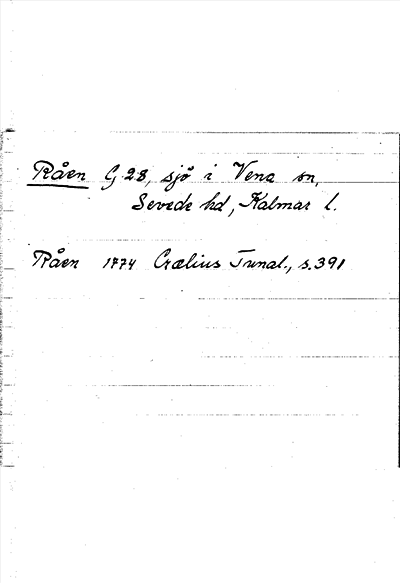 Råen G 28, sjö i Vena sn,
Sevede hd, Kalmar l.
Råen 1774 Crælius Tunal., s. 391